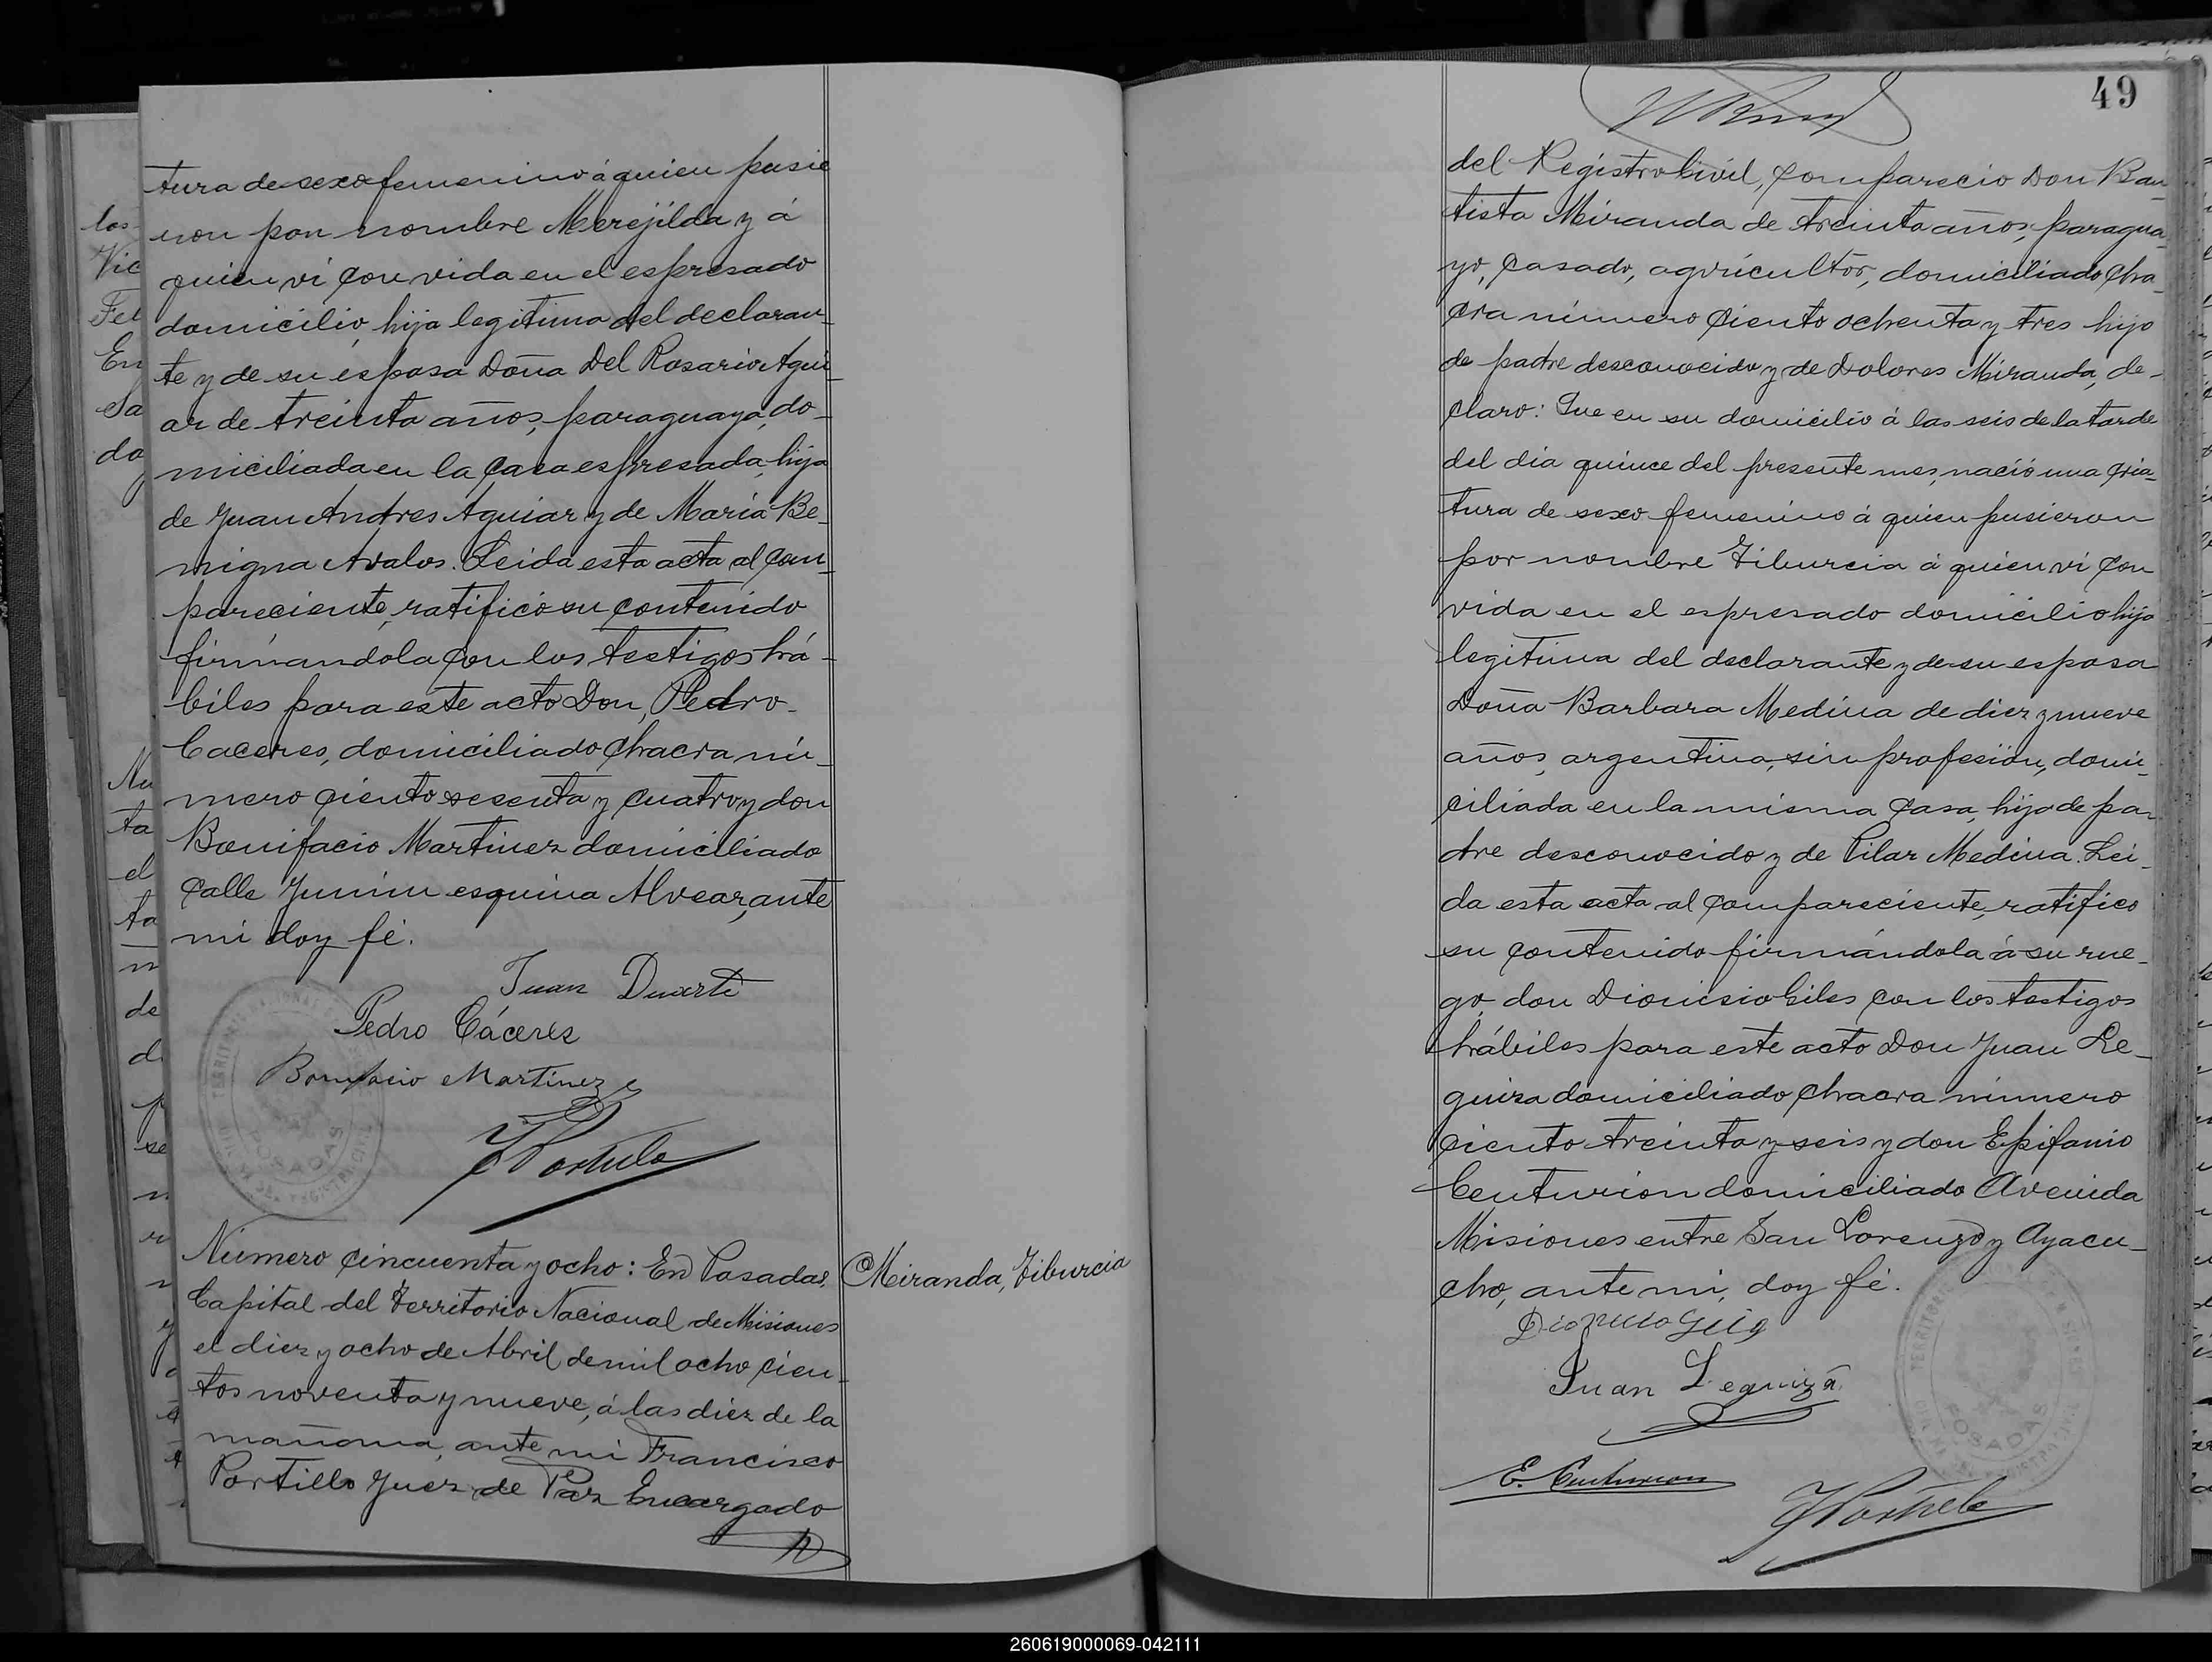 tura de sexo femenino á quien pusie
ron por nombre Merejilda y á
quien vi con vida en el espresado
domicilio, hija legitima del declaran_
te y de su esposa Doña Del Rosario Agui_
ar de treinta años, paraguaya, do_
miciliada en la casa espresada, hija
de Juan Andres Aguiar y de Maria Be_
nigna Avalos. Leida esta acta al com_
pareciente, ratificó su contenido
firmandola con los testigos há_
biles para este acto Don, Pedro
Caceres, domiciliado chacra nú_
mero ciento sesenta y cuatro y don
Bonifacio Martinez domiciliado
calle Junin esquina Alvear, ante
mi doy fé.
Juan Duarte
Pedro Cáceres
Bonifacio Martinez
FPortillo
POSADAS
Número cincuenta y ocho: En Posadas,
Capital del Territorio Nacional de Misiones
el diez y ocho de Abril de mil ocho cien_
tos noventa y nueve, á las diez de la
mañana, ante mi Francisco
Portillo Juez de Paz Encargado
Miranda, Tiburcia
49
del Registro Civil, compareció Don Bau_
tista Miranda de treinta años, paragua_
yo, casado, agricultor, domiciliado cha_
cra número ciento ochenta y tres hijo
de padre desconocido y de Dolores Miranda, de_
claro: Que en su domicilio á las seis de la tarde
del dia quince del presente mes, nació una cria_
tura de sexo femenino á quien pusieron
por nombre Tiburcia á quien vi con
vida en el espresado domicilio hija
legitima del declarante y de su esposa
Doña Barbara Medina de diez y nueve
años, argentina, sin profesión, domi_
ciliada en la misma casa, hija de pa_
dre desconocido y de Pilar Medina. Lei_
da esta acta al compareciente, ratifico
su contenido firmándola á su rue_
go, don Dionisio Giles con los testigos
hábiles para este acto Don Juan Le_
guiza domiciliado chacra número
ciento treinta y seis y don Epifanio
Centurion domiciliado Avenida
Misiones entre San Lorenzo y Ayacu_
cho, ante mi, doy fé.
Juan Leguizá
E. Centurion
FPortillo
POSADAS
260619000069-042111